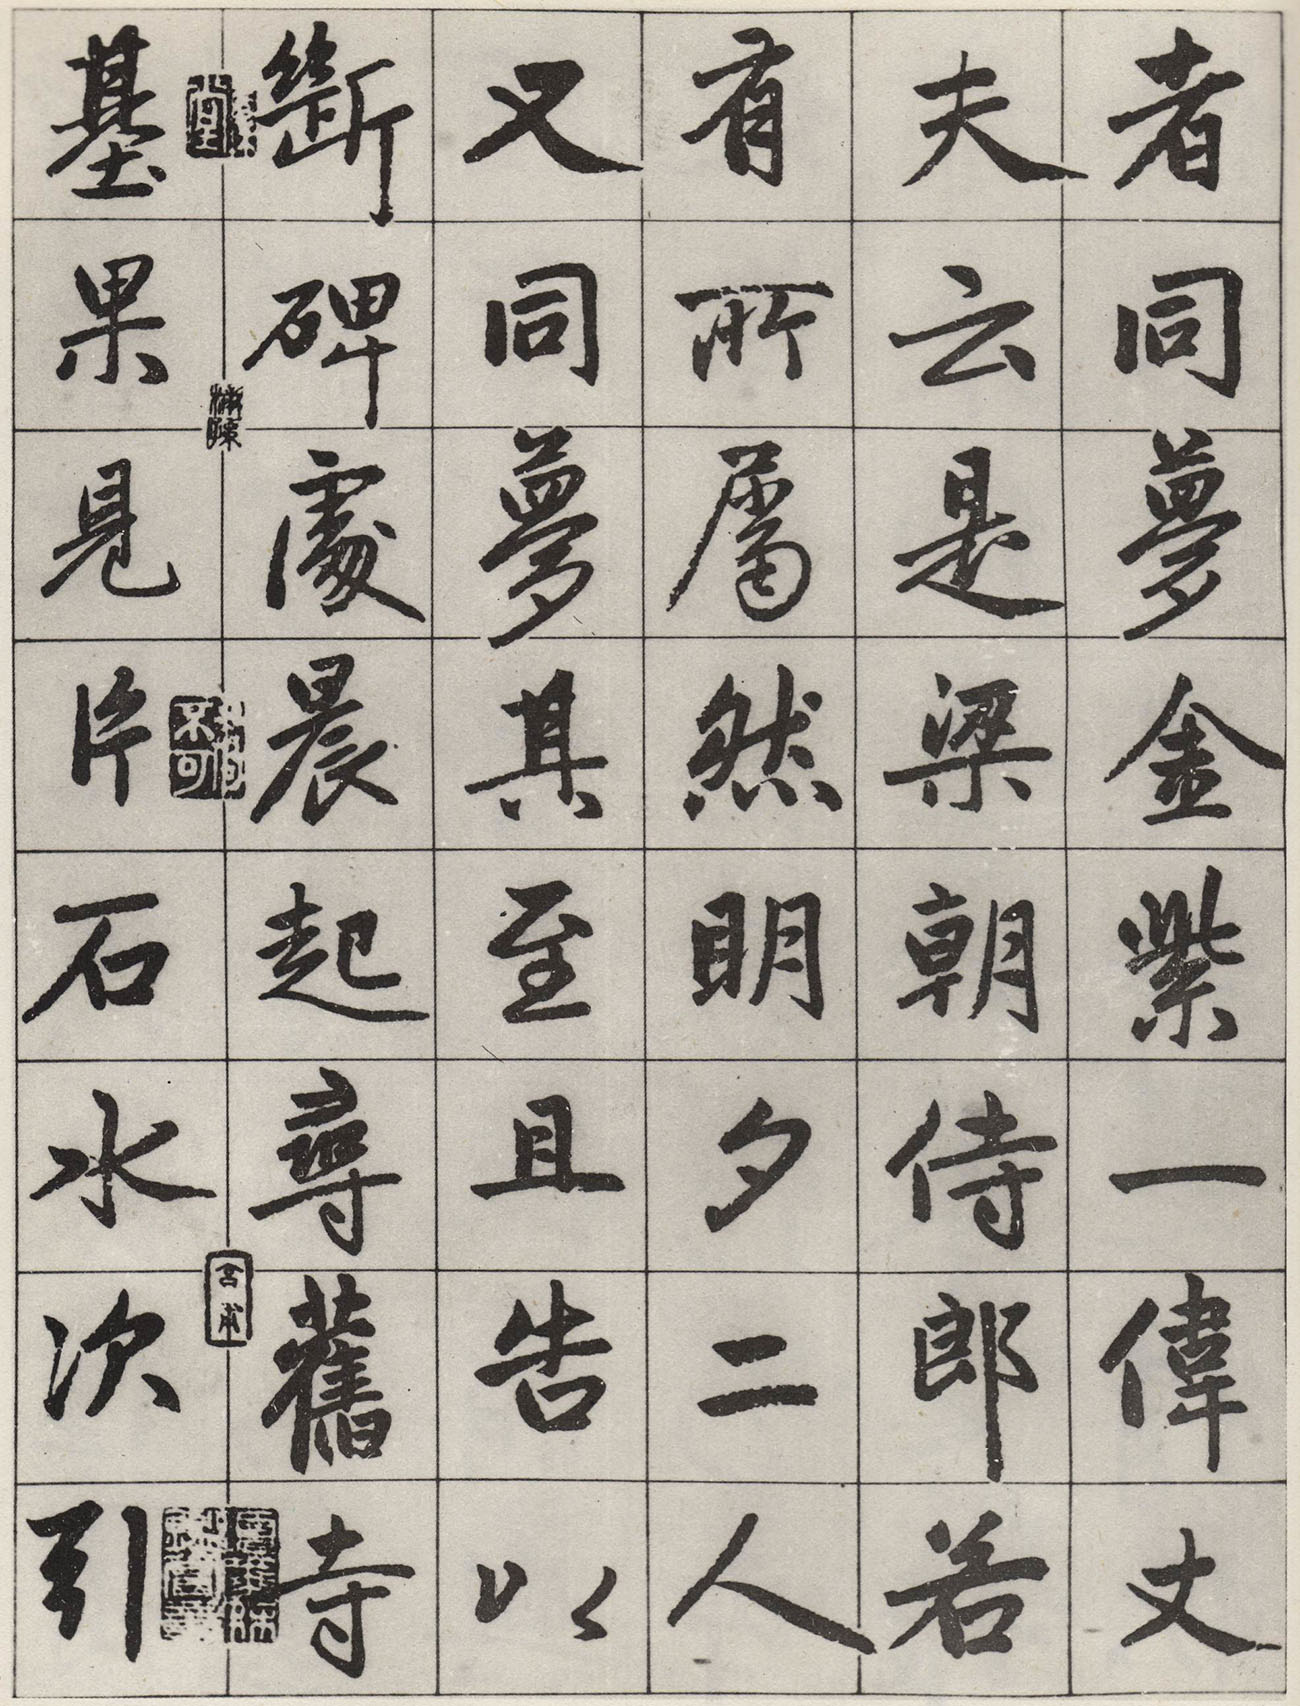 者同夢金紫一偉丈
夫云是梁朝侍郎若
有所屬然明夕二人
又同夢其至且告以
斷碑處晨起尋舊寺
基果見片石水次引